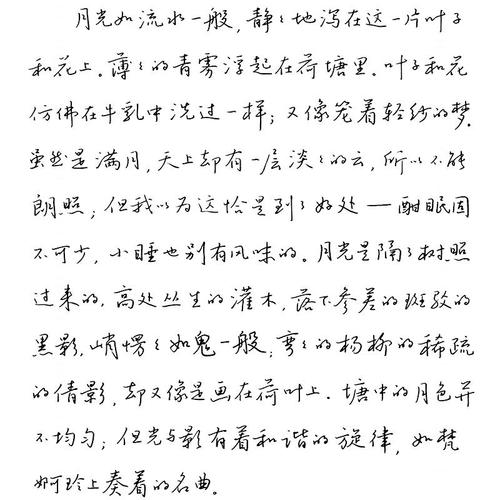 月光如流水一般，静々地泻在这一片叶子
和花上。薄々的青雾浮起在荷塘里。叶子和花
仿佛在牛乳中洗过一样；又像笼着轻纱的梦。
虽然是满月，天上却有一层淡々的云，所以不能
朗照；但我以为这恰是到了好处——酣眠固
不可少，小睡也别有风味的。月光是隔了树照
过来的，高处丛生的灌木，落下参差的斑驳的
黑影，峭愣々如鬼一般；弯々的杨柳的稀疏
的倩影，却又像是画在荷叶上。塘中的月色并
不均匀；但光与影有着和谐的旋律，如梵
婀玲上奏着的名曲。